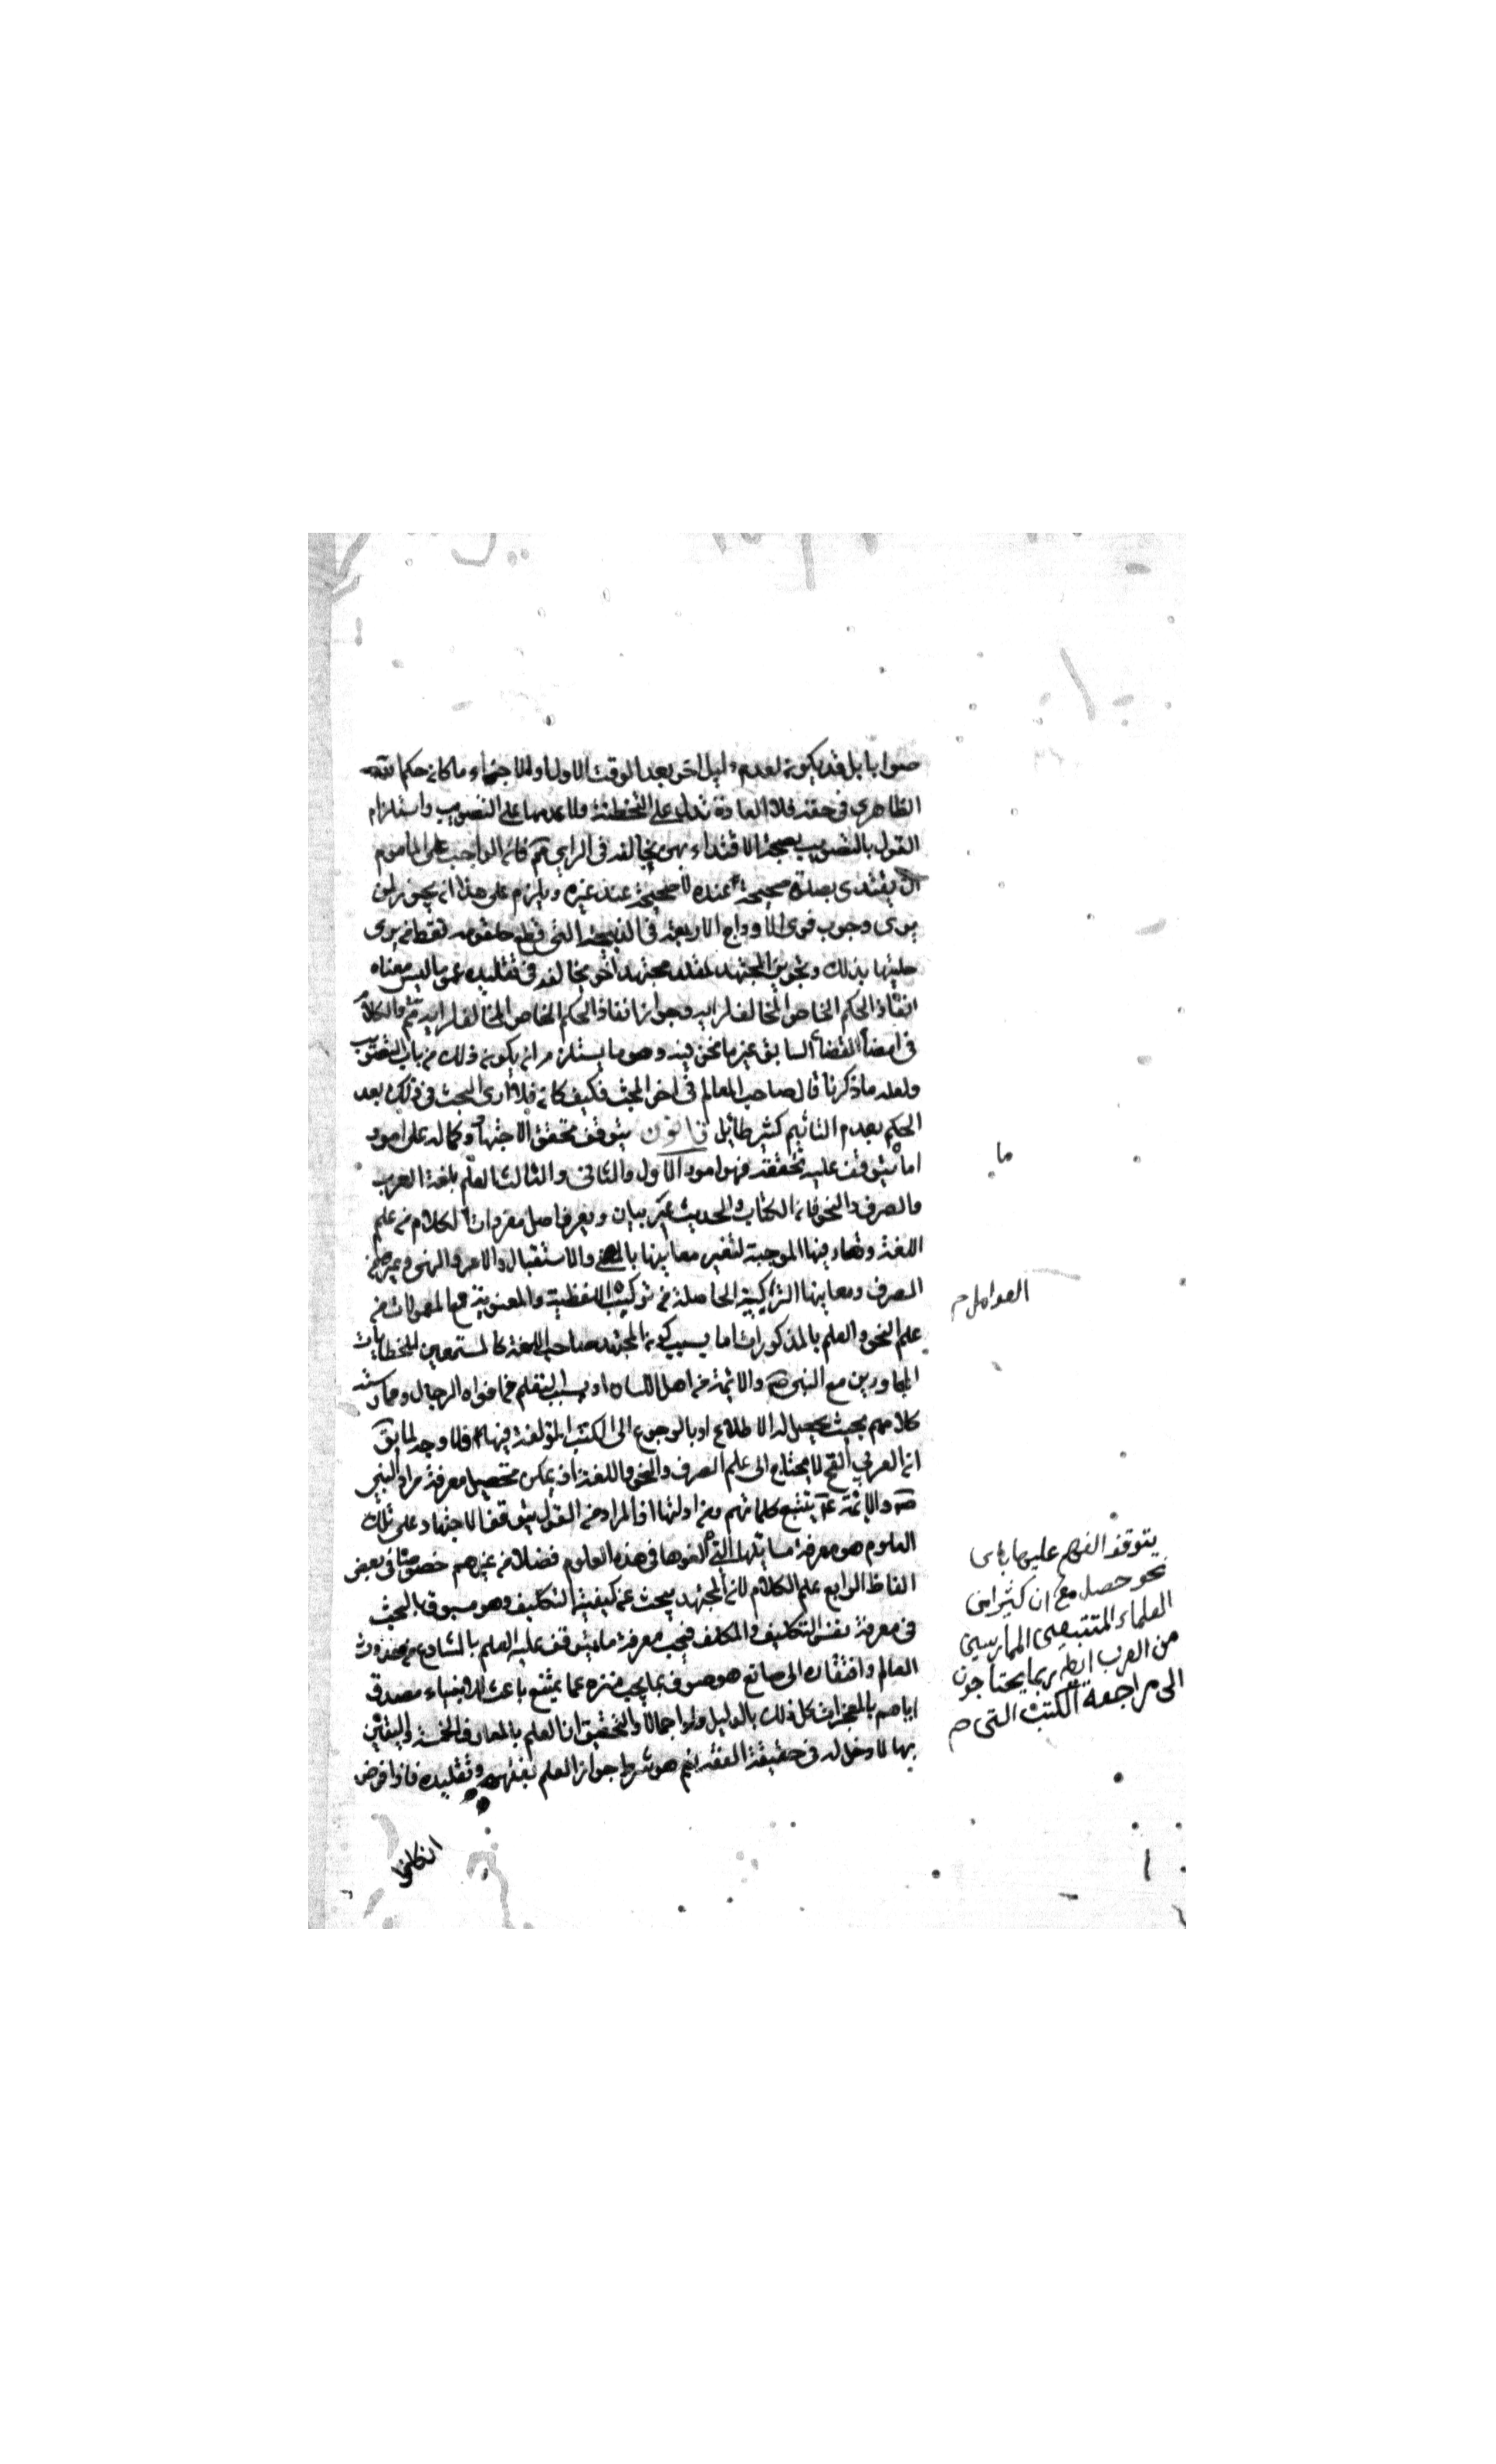 صوابا بل قد يكون لعدم دليل اخر بعد الوقت الاول اولا جزاء ما كان حكم الله
الظاهرى فى حقه فلا العادة تدل على التخطئة ولا عدمها على التصويب واستلزام
القول بالتصويب بصحة الاقتداء بمن يخالفه فى الراى مم فان الواجب على الماموم
ان يقتدى بصلوة صحيحة عنده لا صحيحة عند غيره ويلزم على هذا ان يجوز لمن
يرى وجوب فرى الاوداج الاربعة فى الذبيحة التى قطع حلقومه فقط من يرى
حليتها بذلك وتجويز المجتهد لمقلد مجتهد اخر يخالفه فى تقليده مم ليس معناه
انفاذ الحكم الخاص المخالف لرايه وجواز انفاذ الحكم الخاص المخالف لرايه مم والكلام
فى امضاء القضاء السابق غير ما نحن فيه وهو ما يستلزم ان يكون ذلك من باب التصويب
ولعله ما ذكرنا قال صاحب المعالم فى اخر المبحث فكيف كان فلا ارى البحث فى ذلك بعد
الحكم بعدم التاثيم كثير طائل قانون يتوقف تحقق الاجتهاد وكماله على امور
اما ما يتوقف عليه تحققه فهو امور الاول والثانى والثالث العلم بلغة العرب
والصرف والنحو فان الكتاب والحديث عربيان ويعرف اصل مفردات الكلام من علم
اللغة وتصاريفها الموجبة لتغير معانيها بالمضى والاستقبال والامر والنهى وغيرها من
الصرف ومعانيها التركيبية الحاصلة من تركيب العوامل اللفظية والمعنوية مع المعمولات من
علم النحو والعلم بالمذكورات اما بسبب كون المجتهد صاحب اللغة كالمستمعين للخطابات
المجاورين مع النبى ص والائمة من اهل اللسان او بسبب التعلم من افواه الرجال وممارسة
كلامهم بحيث يحصل له الاطلاع او بالرجوع الى الكتب المؤلفة فيها فلا وجه لما يق
ان العربى القح لا يحتاج الى علم الصرف والنحو واللغة اذ يمكن تحصيل معرفة مراد النبى
ص والائمة ع بتتبع كلماتهم ومزاولتها اذ المراد من القول بتوقف الاجتهاد على تلك
العلوم هو معرفة مسائلها التى الفوها فى هذه العلوم فضلا من غيرهم خصوصا فى بعض
الفاظ الرابع علم الكلام لان المجتهد يبحث عن كيفية التكليف وهو مسبوق بالبحث
فى معرفة نفس التكليف والمكلف فيجب معرفة ما يتوقف عليه العلم بالشارع من حدوث
العالم وافتقاره الى صانع موصوف بما يجب منزه عما يمتنع باعث للانبياء مصدق
اياهم بالمعجزات كل ذلك بالدليل ولو اجمالا والتحقيق ان العلم بالمعارف الخمسة واليقين
بها لا دخل له فى حقيقة الفقه نعم هو شرط جواز العمل بفقهه وتقليده فاذا فرض
ما
العوامل م
يتوقف الفهم عليها باى
نحو حصل مع ان كثيرا من
العلماء المتتبعين الممارسين
من العرب ايضا ربما يحتاجون
الى مراجعة الكتب التى م
ان كافرا